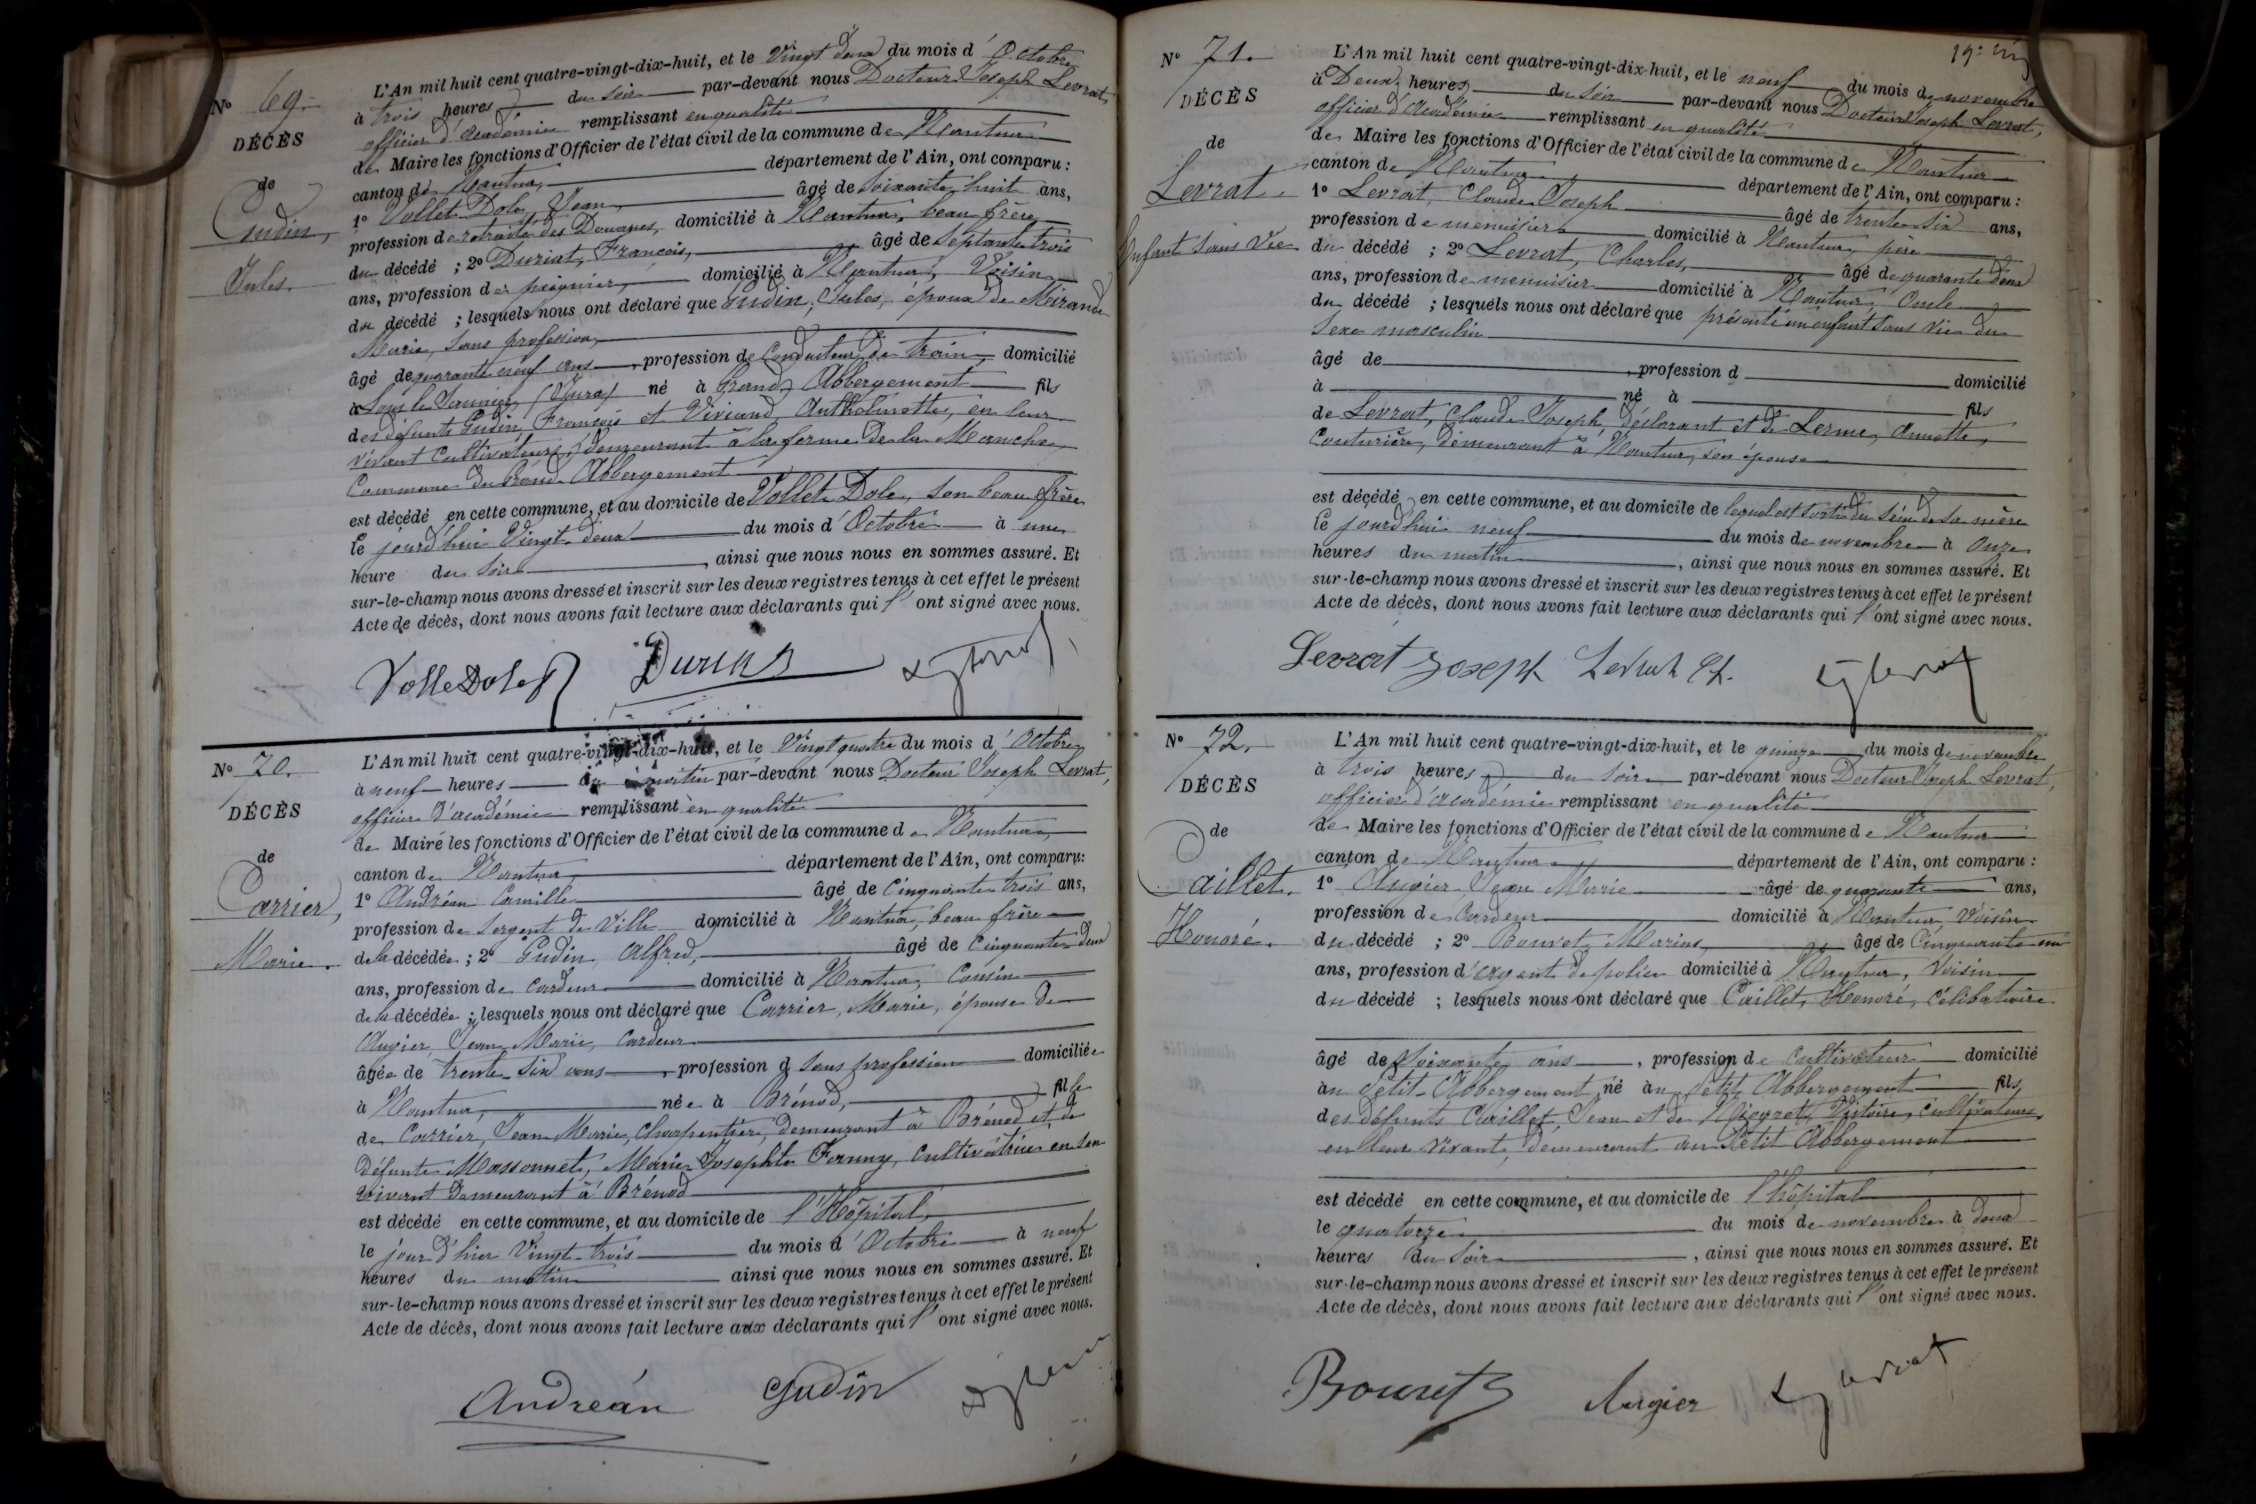 N° 69.
DÉCÈS
de
Gudin,
Jules.
L'An mil huit cent quatre-vingt-dix-huit, et le Vingt deux du mois d'Octobre
à trois heures du soir par-devant nous Docteur Joseph Levrat,
officier d'académie remplissant en qualité
de Maire les fonctions d'Officier de l'état civil de la commune de Nantua
canton de Nantua, département de l'Ain, ont comparu :
1° Vollet Dole, Jean, âgé de soixante huit ans,
profession de retraité des Douanes, domicilié à Nantua, beau frère
du décédé ; 2° Duriat, François, âgé de septante trois
ans, profession de peignier, domicilié à Nantua, Voisin
du décédé ; lesquels nous ont déclaré que Gudin, Jules, époux de Mirand
Marie, sans profession,
âgé de quarante neuf ans, profession de Conducteur de train, domicilié
à Lons le Saunier (Jura) né à Grand Abbergement fils
des défunts Gudin, François et Viviand Anthelmette, en leur
vivant Cultivateurs, demeurant à la ferme de la Manche,
Commune du Grand Abbergement
est décédé en cette commune, et au domicile de Vollet Dole, son beau frère
le jourd'hui Vingt deux du mois d'Octobre à une
heure du soir, ainsi que nous nous en sommes assuré. Et
sur-le-champ nous avons dressé et inscrit sur les deux registres tenus à cet effet le présent
Acte de décès, dont nous avons fait lecture aux déclarants qui l'ont signé avec nous.
VolleDole Duriat
N° 70.
DÉCÈS
de
Carrier,
Marie.
L'An mil huit cent quatre-vingt-dix-huit, et le Vingt quatre du mois d'Octobre
à neuf heures du matin par-devant nous Docteur Joseph Levrat,
officier d'académie remplissant en qualité
de Maire les fonctions d'Officier de l'état civil de la commune de Nantua,
canton de Nantua, département de l'Ain, ont comparu :
1° Andréan Camille âgé de Cinquante trois ans,
profession de Sergent de Ville domicilié à Nantua, beau frère
de la décédée ; 2° Gudin, Alfred, âgé de Cinquante deux
ans, profession de Cardeur domicilié à Nantua, Cousin
de la décédée ; lesquels nous ont déclaré que Carrier, Marie, épouse de
Augier, Jean Marie, Cardeur
âgée de trente six ans, profession d sans profession domiciliée
à Nantua, née à Brénod, fille
de Carrier, Jean Marie, Charpentier, demeurant à Brénod et de
défunte Massonnet, Marie Josephte Fanny, cultivatrice en son
vivant demeurant à Brénod
est décédé en cette commune, et au domicile de l'Hôpital,
le jour d'hier Vingt-trois du mois d'Octobre à neuf
heures du matin ainsi que nous nous en sommes assuré. Et
sur-le-champ nous avons dressé et inscrit sur les deux registres tenus à cet effet le présent
Acte de décès, dont nous avons fait lecture aux déclarants qui l'ont signé avec nous.
Andréan Gudin
N° 71.
DÉCÈS
de
Levrat.
Enfant sans vie
L'An mil huit cent quatre-vingt-dix-huit, et le neuf du mois de novembre
à Deux heures du soir par-devant nous Docteur Joseph Levrat,
officier d'Académie remplissant en qualité
de Maire les fonctions d'Officier de l'état civil de la commune de Nantua
canton de Nantua département de l'Ain, ont comparu :
1° Levrat, Claude Joseph âgé de trente six ans,
profession de menuisier domicilié à Nantua, père
du décédé ; 2° Levrat, Charles, âgé de quarante deux
ans, profession de menuisier domicilié à Nantua, Oncle
du décédé ; lesquels nous ont déclaré que présenté un enfant sans vie du
sexe masculin
âgé de, profession d domicilié
à né à fils
de Levrat, Claude Joseph, déclarant et de Lerme, Annette,
Couturière, demeurant à Nantua, son épouse
est décédé en cette commune, et au domicile de lequel est sorti du sein de sa mère
le jourd'hui neuf du mois de novembre à onze
heures du matin, ainsi que nous nous en sommes assuré. Et
sur-le-champ nous avons dressé et inscrit sur les deux registres tenus à cet effet le présent
Acte de décès, dont nous avons fait lecture aux déclarants qui l'ont signé avec nous.
Levrat Joseph Levrat Ch.
N° 72.
DÉCÈS
de
Caillet,
Honoré.
L'An mil huit cent quatre-vingt-dix-huit, et le quinze du mois de novembre
à trois heures du soir par-devant nous Docteur Joseph Levrat,
officier d'académie remplissant en qualité
de Maire les fonctions d'Officier de l'état civil de la commune de Nantua
canton de Nantua département de l'Ain, ont comparu :
1° Augier Jean Marie âgé de quarante ans,
profession de Cardeur domicilié à Nantua, Voisin
du décédé ; 2° Bouvet Marius, âgé de Cinquante un
ans, profession d'agent de police domicilié à Nantua, Voisin
du décédé ; lesquels nous ont déclaré que Caillet, Honoré, célibataire
âgé de Soixante ans, profession de Cultivateur domicilié
au Petit-Abbergement, né au Petit Abbergement fils
des défunts Caillet, Jean et de Nicyret, Victoire, cultivateurs,
en leur vivant, demeurant au Petit Abbergement
est décédé en cette commune, et au domicile de l'hôpital
le quatorze du mois de novembre à deux
heures du soir, ainsi que nous nous en sommes assuré. Et
sur-le-champ nous avons dressé et inscrit sur les deux registres tenus à cet effet le présent
Acte de décès, dont nous avons fait lecture aux déclarants qui l'ont signé avec nous.
Bouvet Augier